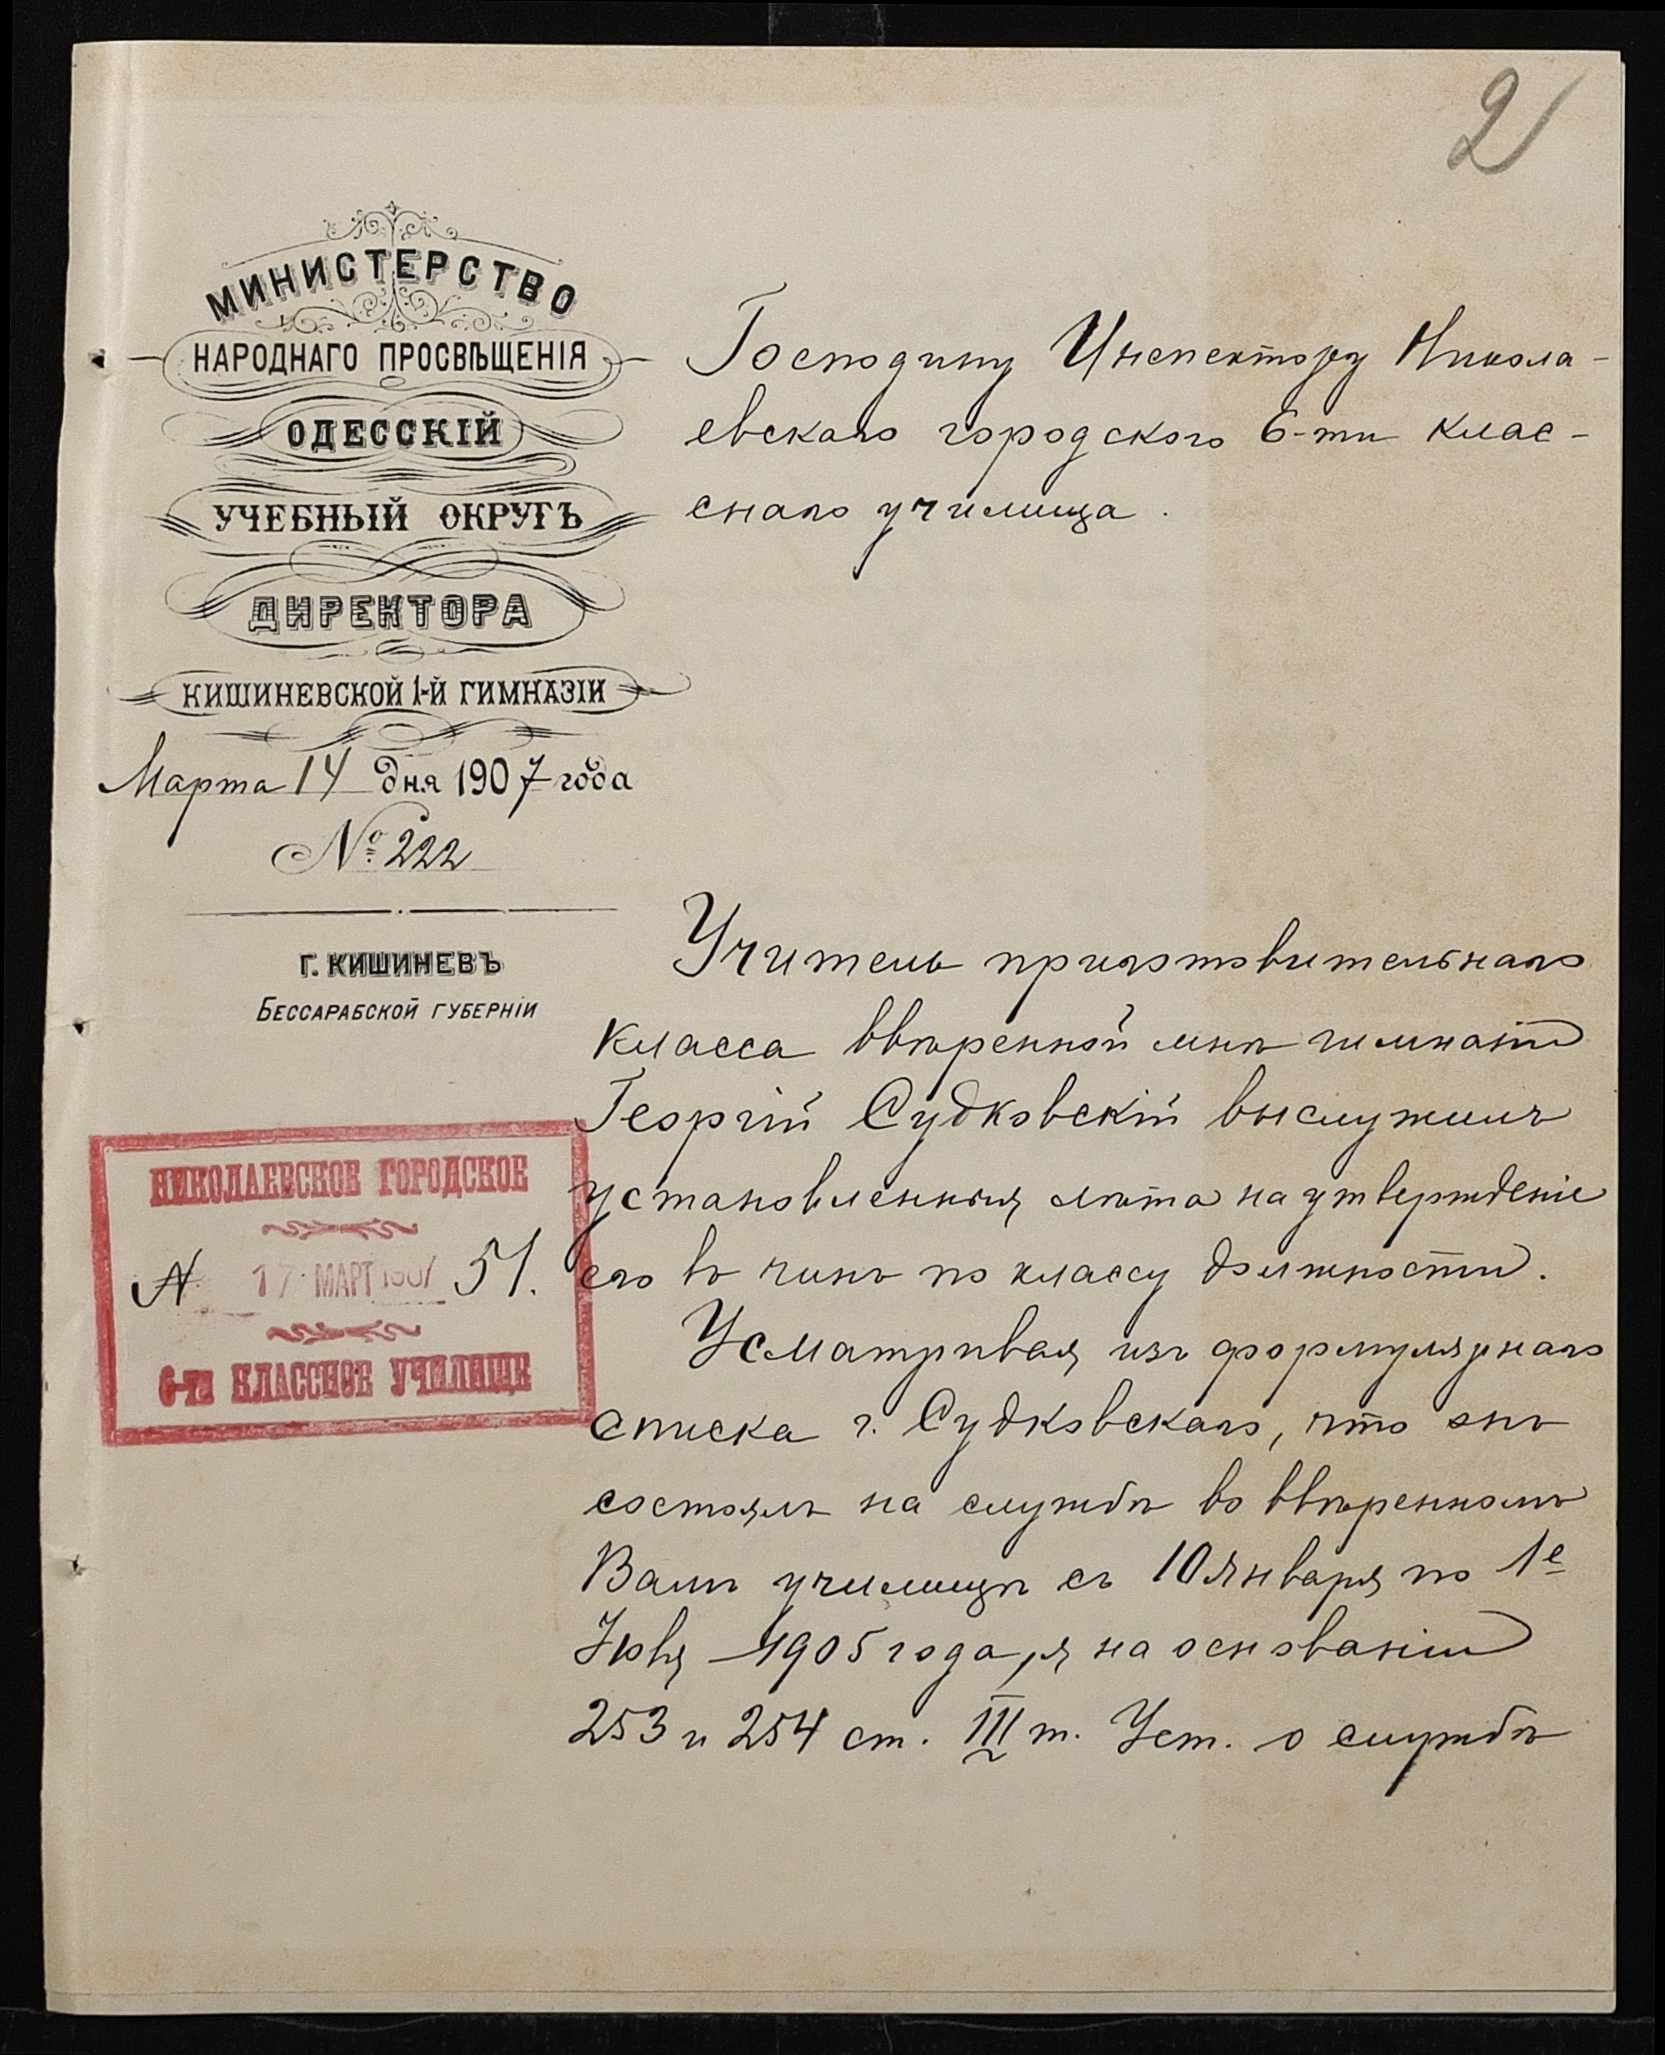 2
МИНИСТЕРСТВО
НАРОДНАГО ПРОСВѢЩЕНІЯ
ОДЕССКІЙ
УЧЕБНЫЙ ОКРУГЪ
ДИРЕКТОРА
КИШИНЕВСКОЙ 1-Й ГИМНАЗІИ
Марта 14 дня 1907 года
№ 222
Г. КИШИНЕВЪ
БЕССАРАБСКОЙ ГУБЕРНІИ
НИКОЛАЕВСКОЕ ГОРОДСКОЕ
№ 17 МАРТ 1907 51.
6-ТИ КЛАССНОЕ УЧИЛИЩЕ
Господину Инспектору Никола-
евскаго городского 6-ти клас-
снаго училища.
Учитель приготовительнаго
класса ввѣренной мнѣ гимназіи
Георгій Судковскій выслужилъ
установленныя лѣта на утвержденіе
его въ чинѣ по классу должности.
Усматривая изъ формулярнаго
списка г. Судковскаго, что онъ
состоялъ на службѣ во ввѣренномъ
Вамъ училищѣ съ 10 января по 1е
1905 года, я на основаніи
253 и 254 ст. III т. Уст. о службѣ